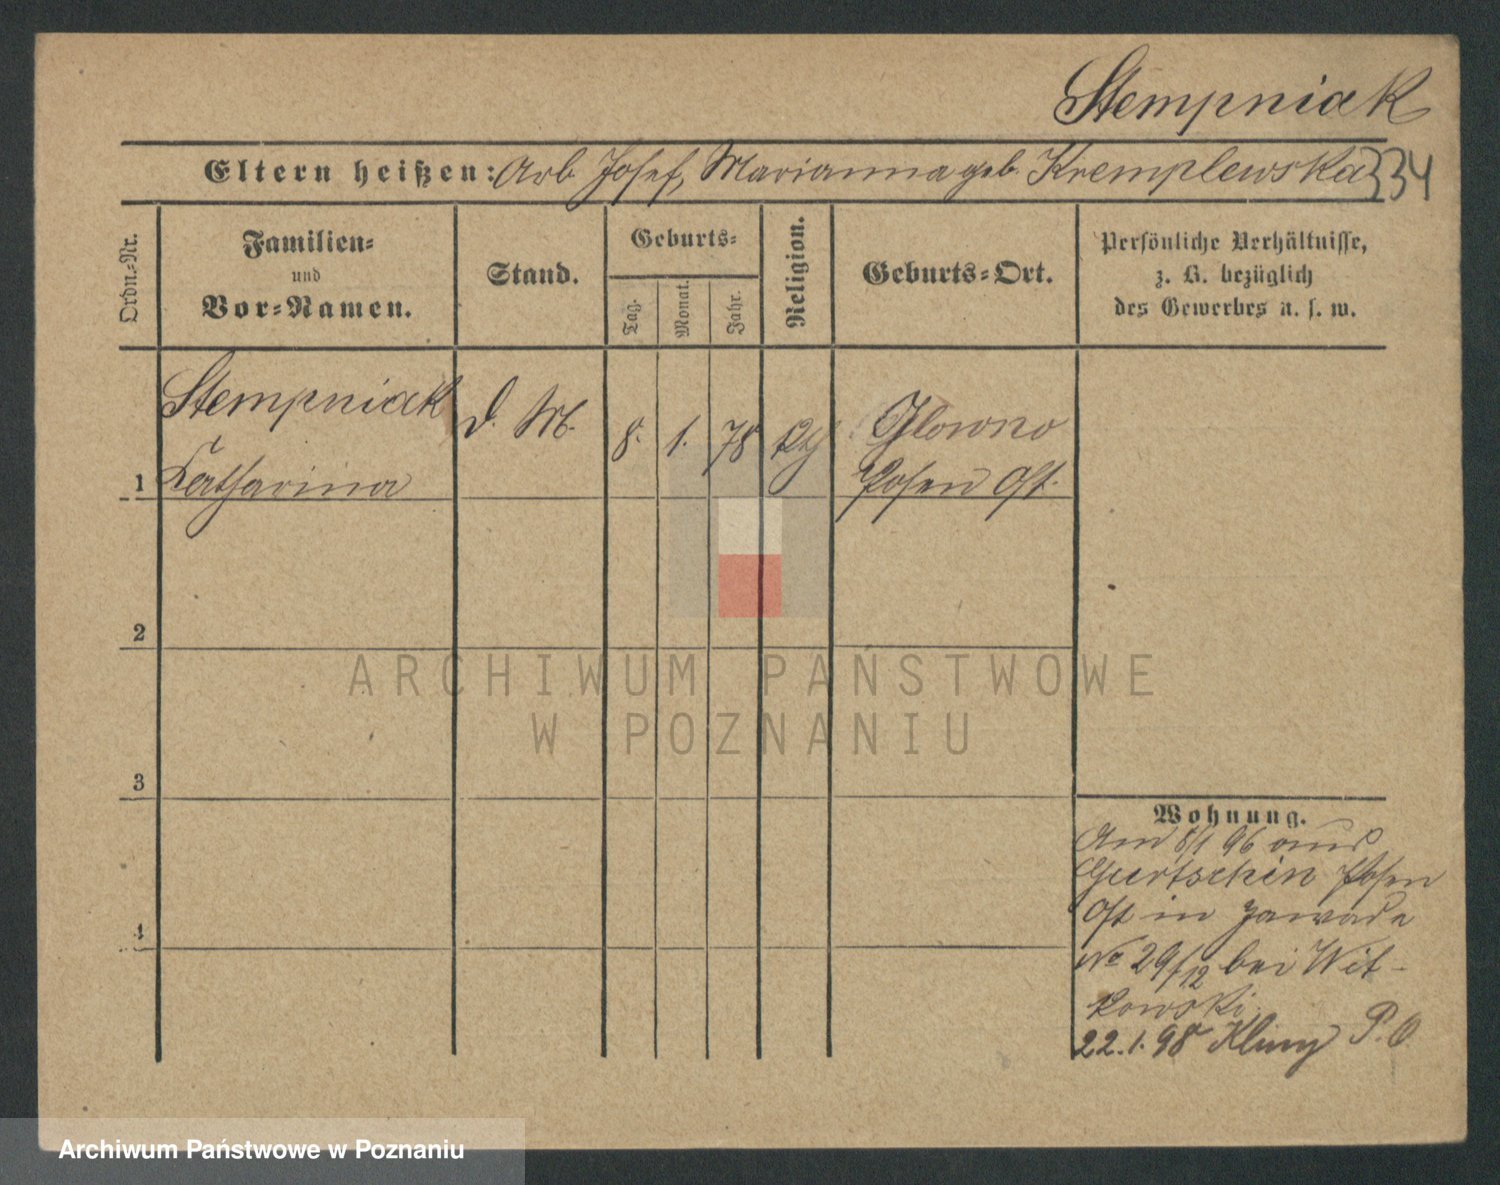 Stempniak
Eltern heißen: Arb Josef, Marianna geb. Kremplewska 334
Ordn.-Nr.
Familien-
und
Vor-Namen.
Stand.
Geburts-
Tag.
Monat.
Jahr.
Religion.
Geburts-Ort.
Persönliche Verhältnisse,
z. B. bezüglich
des Gewerbes u. s. w.
Stempniak d. M. 8. 1. 78 Glowno
1 Katharina Posen Ost.
2
3
4
Wohnung.
Am 8/1 96 aus
Gurtschin Posen
Ost in Zawade
No 29/12 bei Wit-
kowski
22.1.98 P. O
ARCHIWUM PAŃSTWOWE
W POZNANIU
Archiwum Państwowe w Poznaniu